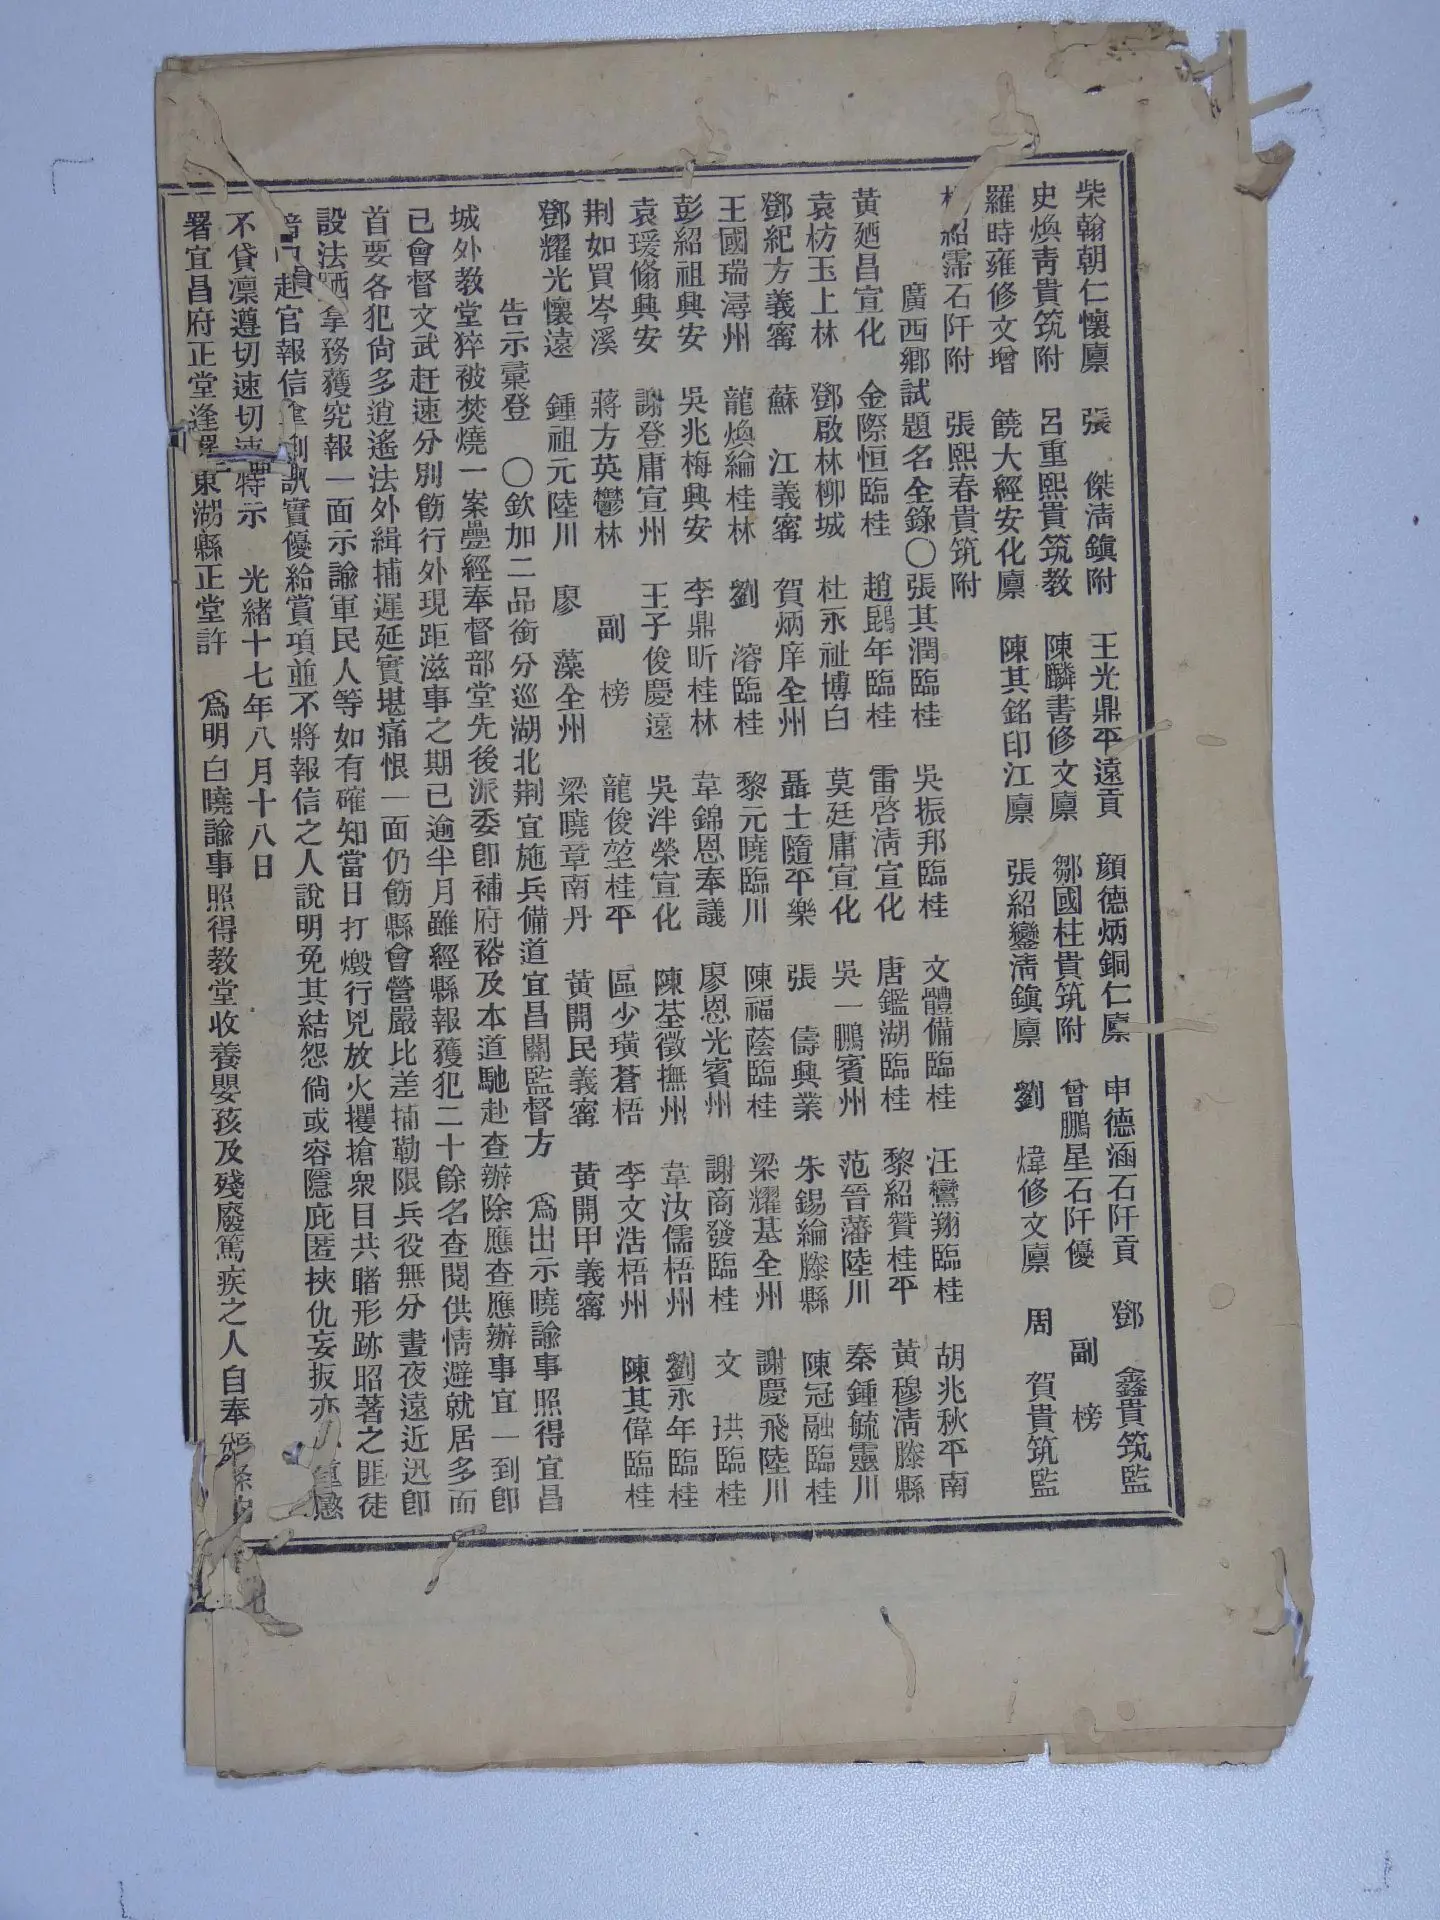 柴翰朝仁懷廩 張 傑淸鎭附 王光鼎平遠貢 顔德炳銅仁廩 申德涵石阡貢 鄧 鑫貴筑監
史煥靑貴筑附 呂重熙貴筑敎 陳麟書修文廩 鄒國柱貴筑附 曾鵬星石阡優 副榜
羅時雍修文增 饒大經安化廩 陳其銘印江廩 張紹鑾淸鎭廩 劉 煒修文廩 周 賀貴筑監
紹霈石阡附 張熙春貴筑附
廣西鄕試題名全錄〇張其潤臨桂 吳振邦臨桂 文體備臨桂 汪鸞翔臨桂 胡兆秋平南
黃廼昌宣化 金際恒臨桂 趙 年臨桂 雷啓淸宣化 唐鑑湖臨桂 黎紹贊桂平 黃穆淸滕縣
袁枋玉上林 鄧啟林柳城 杜永祉博白 莫廷庸宣化 吳一鵬賓州 范晉藩陸川 秦鍾毓靈川
鄧紀方義寗 蘇 江義寗 賀炳庠全州 聶士隨平樂 張 儔興業 朱錫綸滕縣 陳冠融臨桂
王國瑞潯州 龍煥綸桂林 劉 溶臨桂 黎元曉臨川 陳福蔭臨桂 梁耀基全州 謝慶飛陸川
彭紹祖興安 吳兆梅興安 李鼎昕桂林 韋錦恩奉議 廖恩光賓州 謝商發臨桂 文 珙臨桂
袁瑗脩興安 謝登庸宣州 王子俊慶遠 吳泮榮宣化 陳荃徵撫州 韋汝儒梧州 劉永年臨桂
荆如買岑溪 蔣方英鬱林 副榜 龍俊堃桂平 區少璜蒼梧 李文浩梧州 陳其偉臨桂
鄧耀光懷遠 鍾祖元陸川 廖 藻全州 梁曉章南丹 黃開民義寗 黃開甲義寗
告示彙登 〇欽加二品銜分巡湖北荆宜施兵備道宜昌關監督方 爲出示曉諭事照得宜昌
城外敎堂猝被焚燒一案疊經奉督部堂先後派委卽補府裕及本道馳赴查辦除應查應辦事宜一到卽
已會督文武赶速分別飭行外現距滋事之期已逾半月雖經縣報獲犯二十餘名查閱供情避就居多而
首要各犯尙多逍遙法外緝捕遲延實堪痛恨一面仍飭縣會營嚴比差捕勒限兵役無分晝夜遠近迅卽
設法跴拿務獲究報一面示諭軍民人等如有確知當日打燬行兇放火攫搶衆目共睹形跡昭著之匪徒
赴官報信拿到訊實優給賞項並不將報信之人說明免其結怨倘或容隱庇匿挾仇妄扳亦 重懲
不貸凜遵切速切速特示 光緒十七年八月十八日
署宜昌府正堂逢署東湖縣正堂許 爲明白曉諭事照得敎堂收養嬰孩及殘廢篤疾之人自奉